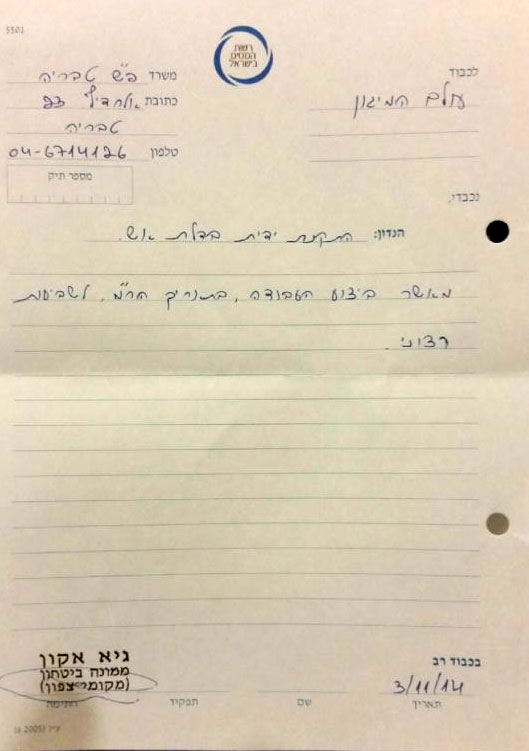 5501
רשות
המסים
בישראל
לכבוד
עולם המיגון
משרד פ"ש טבריה
כתובת אלחדיף 23
טבריה
טלפון 04-6714126
מספר תיק
נכבדי,
הנדון: התקנת ידית בדלת אש.
מאשר ביצוע העבודה, בתאריך הר"מ, לשביעות
רצוני.
בכבוד רב
3/11/14
תאריך
שם
תפקיד
חתימה
גיא אקון
ממונה ביטחון
(מקומי צפון)